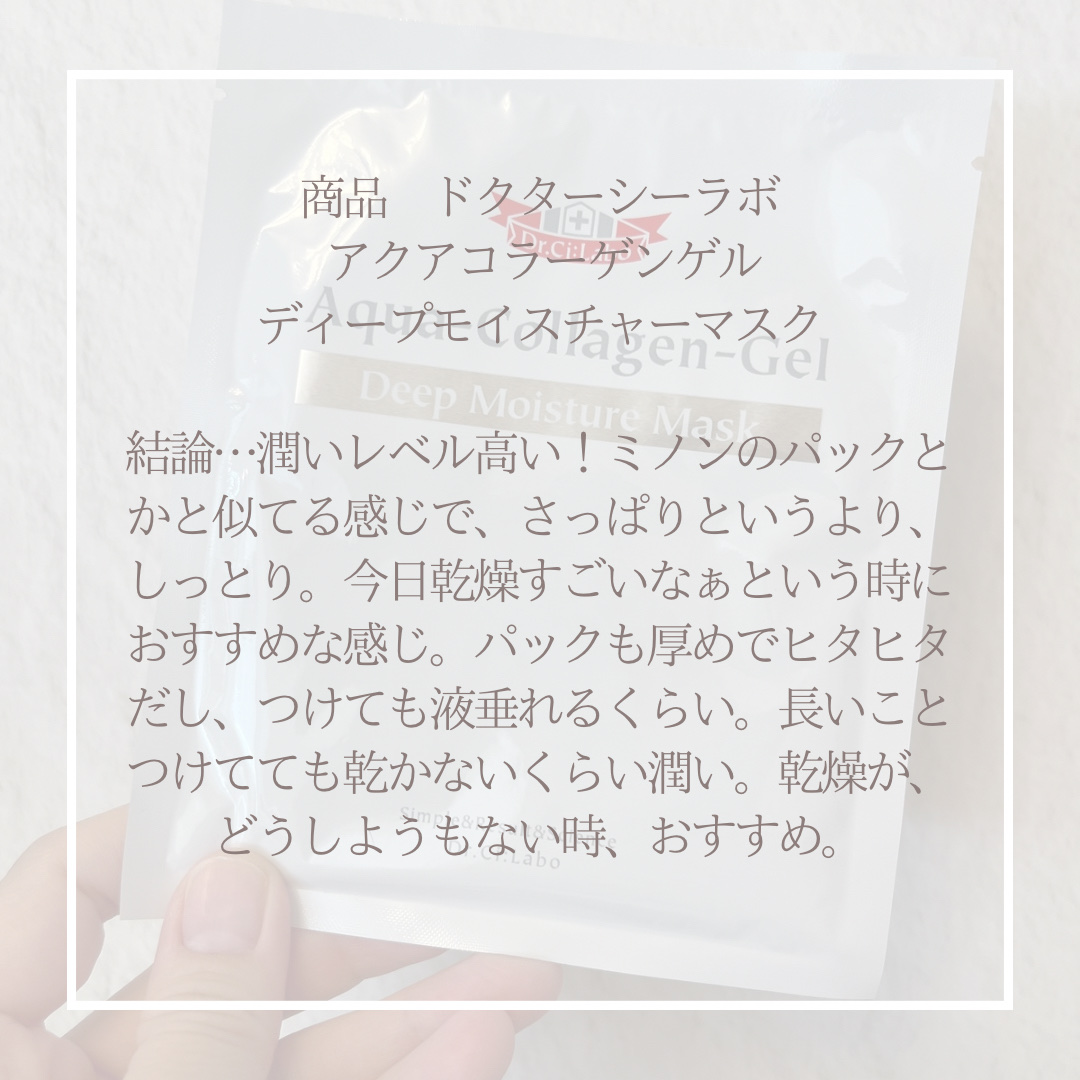 商品　ドクターシーラボ
アクアコラーゲンゲル
ディープモイスチャーマスク
結論…潤いレベル高い！ミノンのパックと
かと似てる感じで、さっぱりというより、
しっとり。今日乾燥すごいなぁという時に
おすすめな感じ。パックも厚めでヒタヒタ
だし、つけても液垂れるくらい。長いこと
つけてても乾かないくらい潤い。乾燥が、
どうしようもない時、おすすめ。
Dr.Ci:Labo
Aqua-Collagen-Gel
Deep Moisture Mask
Simple&Result&Science
Dr.Ci:Labo